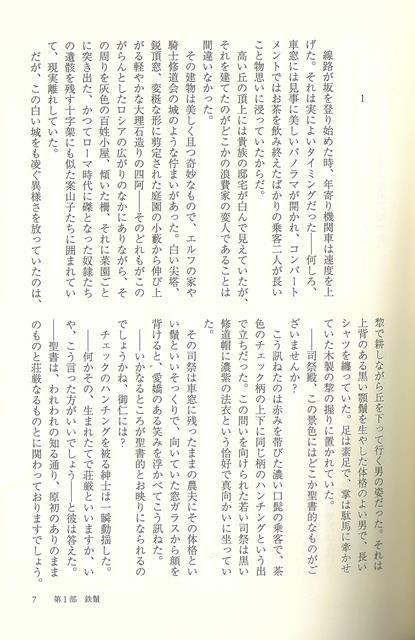 1
線路が坂を登り始めた時、年寄り機関車は速度を上
げた。それは実によいタイミングだった――何しろ、
車窓には見事に美しいパノラマが開かれ、コンパート
メントではお茶を飲み終えたばかりの乗客二人が長い
こと物思いに浸っていたからだ。
高い丘の頂上には貴族の邸宅が白んで見えていたが、
それを建てたのがどこかの浪費家の変人であることは
間違いなかった。
その建物は美しく且つ奇妙なもので、エルフの家や
騎士修道会の城のような佇まいがあった。白い尖塔、
鋭頂窓、変梃な形に剪定された庭園の小藪から伸び上
がる軽やかな大理石造りの四阿――そのどれもがこの
がらんとしたロシアの広がりのなかにありながら、そ
の周りを灰色の百姓小屋、傾いた柵、それに菜園ごと
に突き出た、かつてローマ時代に磔となった奴隷たち
の遺骸を残す十字架にも似た案山子たちに囲まれてい
て、現実離れしていた。
だが、この白い城をも凌ぐ異様さを放っていたのは、
犂で耕しながら丘を下って行く男の姿だった。それは
上背のある黒い顎鬚を生やした体格のよい男で、長い
シャツを纏っていた。足は素足で、掌は駄馬に牽かせ
ていた木製の犂の握りに置かれていた。
――司祭殿、この景色にはどこか聖書的なものがご
ざいませんか？
こう訊ねたのは赤みを帯びた濃い口髭の乗客で、茶
色のチェック柄の上下に同じ柄のハンチングという出
で立ちだった。この問いを向けられた若い司祭は黒い
修道帽に濃紫の法衣という恰好で真向かいに坐ってい
た。
その司祭は車窓に残ったままの農夫にその体格とい
い鬚といいそっくりで、向いていた窓ガラスから顔を
背けると、愛嬌のある笑みを浮かべてこう訊ねた。
――いかなるところが聖書的とお映りになられるの
でしょうかね、御仁には？
チェックのハンチングを被る紳士は一瞬動揺した。
――何かその、生まれたてで荘厳といいますか、い
や、こう言った方がいいでしょう――と彼は答えた。
――聖書は、われわれの知る通り、原初のありのまま
のものと荘厳なるものとに関わっておりますでしょう。
第1部 鉄鬚 7